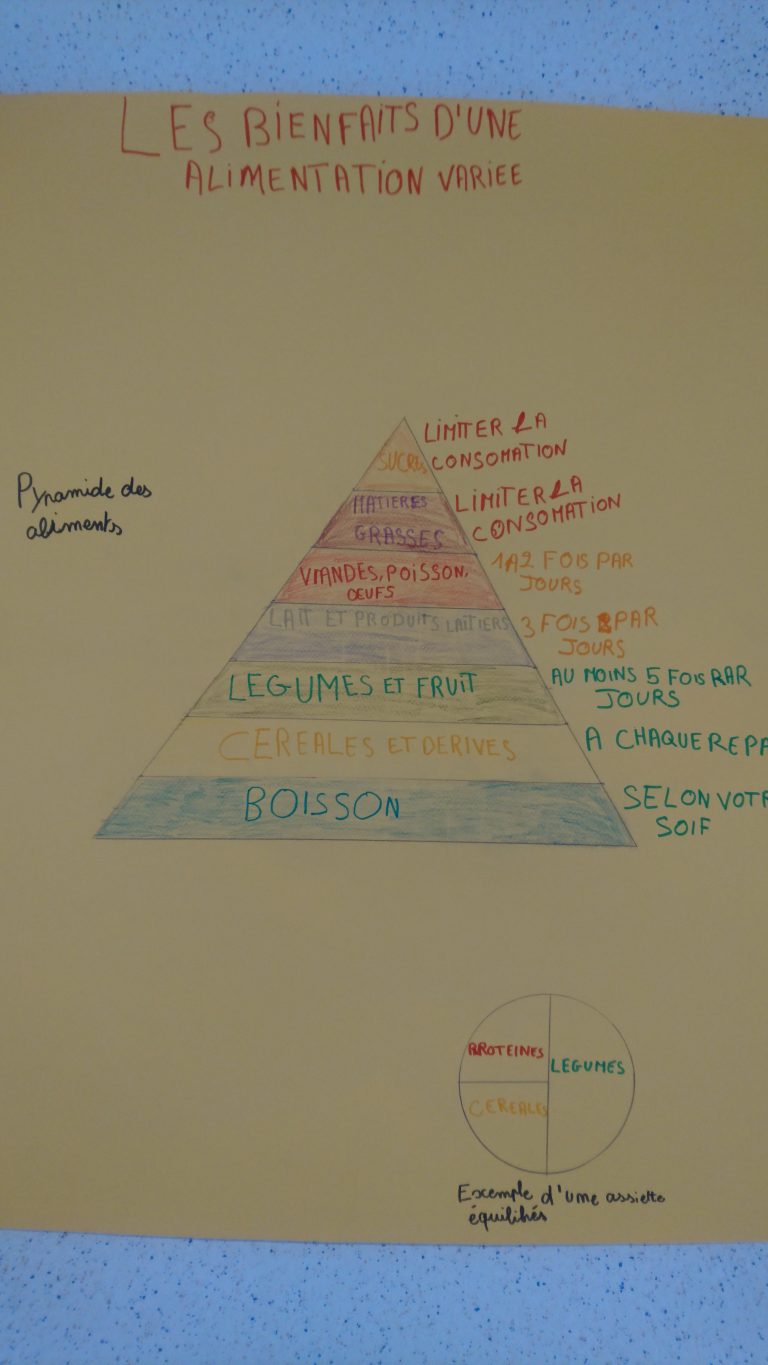 LES BIENFAITS D'UNE
ALIMENTATION VARIEE
Pyramide des
aliments
SUCRES
LIMITER LA
CONSOMATION
MATIERES
GRASSES
LIMITER LA
CONSOMATION
VIANDES, POISSON,
OEUFS
1A2 FOIS PAR
JOURS
LAIT ET PRODUITS LAITIERS
3 FOIS PAR
JOURS
LEGUMES ET FRUIT
AU MOINS 5 FOIS RAR
JOURS
CEREALES ET DERIVES
A CHAQUE REPA
BOISSON
SELON VOTR
SOIF
PROTEINES
LEGUMES
CEREALES
Exemple d'une assiette
équilibrés